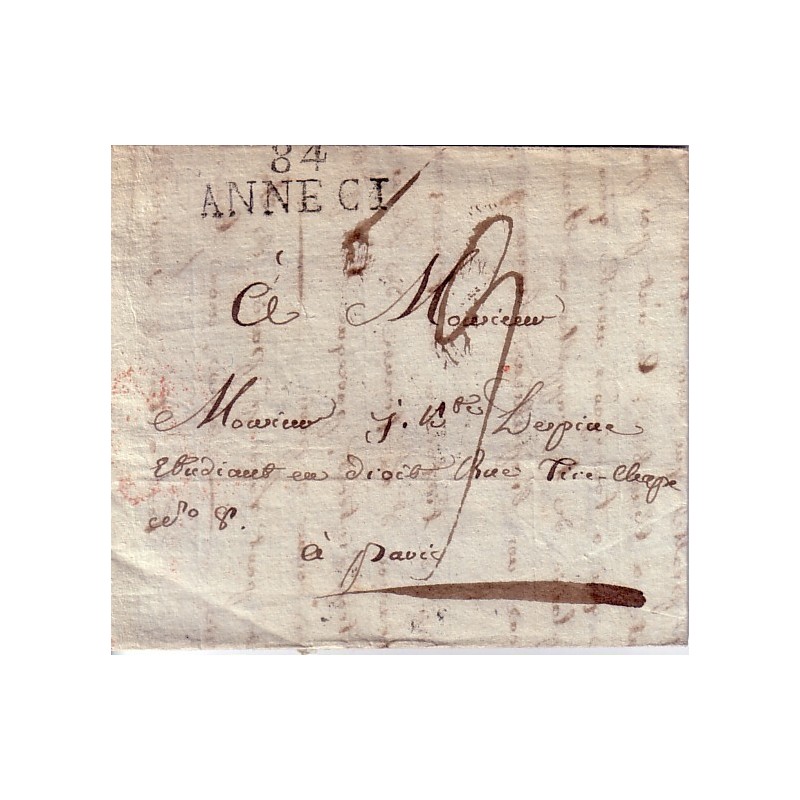 84
ANNECI
à Monsieur
9
Monsieur j. Lespine
Etudiant en droit Rue Tire-Chape
N.º 8.
à paris